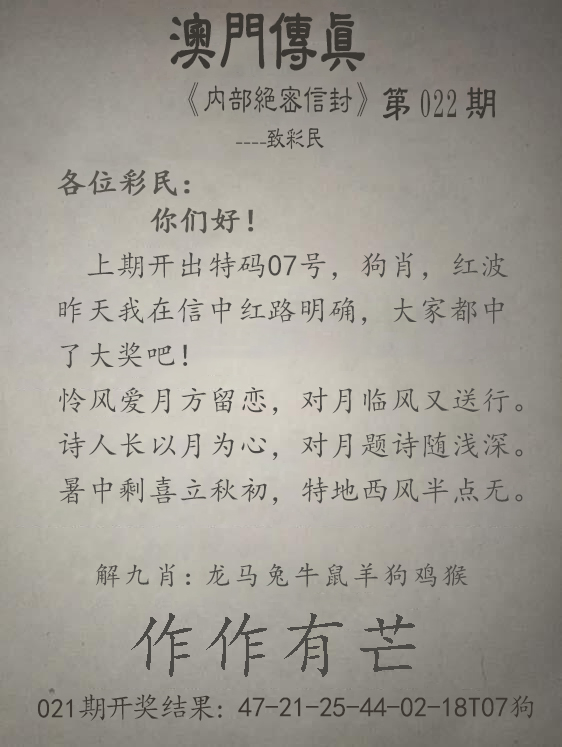 澳門傳眞
《内部絕密信封》第022期
----致彩民
各位彩民：
你们好！
上期开出特码07号，狗肖，红波
昨天我在信中红路明确，大家都中
了大奖吧！
怜风爱月方留恋，对月临风又送行。
诗人长以月为心，对月题诗随浅深。
暑中剩喜立秋初，特地西风半点无。
解九肖：龙马兔牛鼠羊狗鸡猴
作作有芒
021期开奖结果：47-21-25-44-02-18T07狗